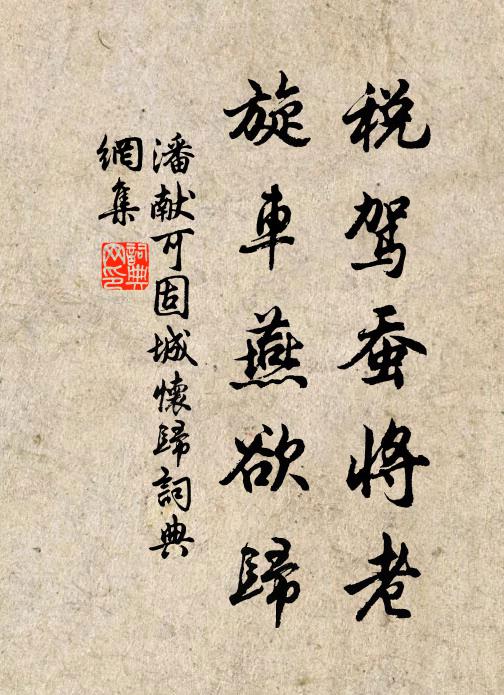 税駕蚕將老
旋車燕欲歸
潘献可固城懷歸詞典
網集
詞典
网印